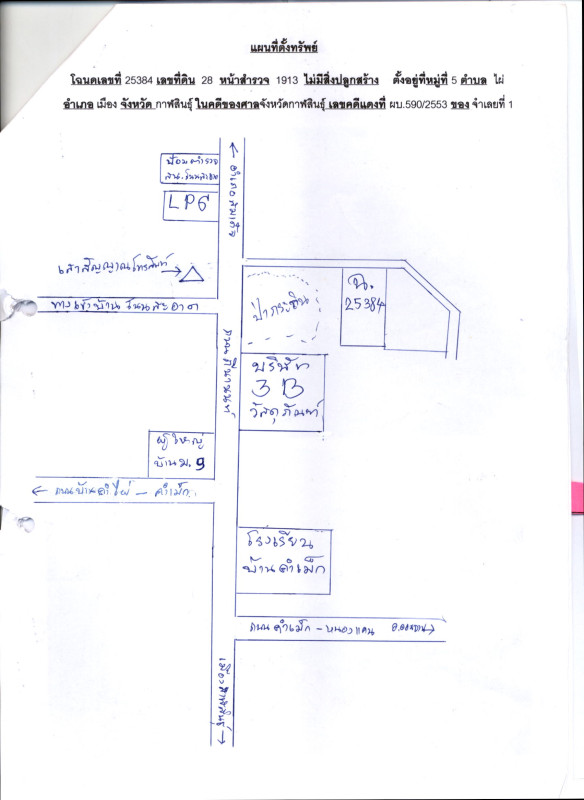 แผนที่ตั้งทรัพย์
โฉนดเลขที่ 25384 เลขที่ดิน 28 หน้าสำรวจ 1913 ไม่มีสิ่งปลูกสร้าง ตั้งอยู่ที่หมู่ที่ 5 ตำบล ไผ่
อำเภอ เมือง จังหวัด กาฬสินธุ์ ในคดีของศาลจังหวัดกาฬสินธุ์ เลขคดีแดงที่ ผบ.590/2553 ของ จำเลยที่ 1
ป้อมตำรวจ
LPG
เสาสัญญาณโทรศัพท์
ทางเข้าบ้านโนนสะอาด
ป่ากระถิน
ฉ.
25384
บริษัท
3 B
วัสดุภัณฑ์
ผู้ใหญ่
บ้าน ม. 9
ถนนบ้านคำไผ่ - คำเม็ก
โรงเรียน
บ้านคำเม็ก
ถนนคำเม็ก - หนองแคน
เมืองกาฬสินธุ์